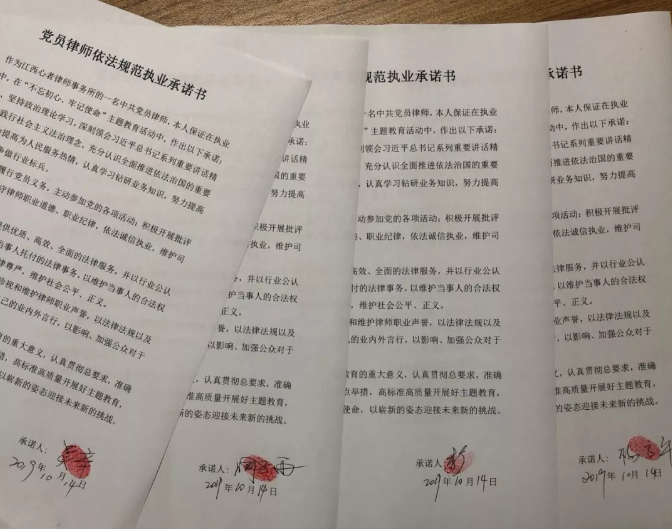 党员律师依法规范执业承诺书
作为江西心者律师事务所的一名中共党员律师,本人保证在执业
中,在“不忘初心、牢记使命”主题教育活动中,作出以下承诺:
坚持政治理论学习,深刻领会习近平总书记系列重要讲话精
践行社会主义法治理念,充分认识全面推进依法治国的重要
提高为人民服务热情,认真学习钻研业务知识,努力提高
争做行业标兵。
履行党员义务,主动参加党的各项活动;积极开展批评
守律师职业道德、职业纪律,依法诚信执业,维护司
提供优质、高效、全面的法律服务,并以行业公认
当事人托付的法律事务,以维护当事人的合法权
律尊严,维护社会公平、正义。
珍视和维护律师职业声誉,以法律法规以及
己的业内外言行,以影响、加强公众对于
育的重大意义,认真贯彻总要求,准确
措,高标准高质量开展好主题教育,
以崭新的姿态迎接未来新的挑战。
承诺人:
2019年10月14日
,本人保证在执业
作出以下承诺:
系列重要讲话精
依法治国的重要
知识,努力提高
积极开展批评
执业,维护司
并以行业公认
事人的合法权
法律法规以及
强公众对于
,认真贯彻总要求,准确
准高质量开展好主题教育,
新的姿态迎接未来新的挑战。
承诺人:
2019年10月14日
规范执业承诺书
一名中共党员律师,本人保证在执业
”主题教育活动中,作出以下承诺:
刻领会习近平总书记系列重要讲话精
充分认识全面推进依法治国的重要
,认真学习钻研业务知识,努力提高
动参加党的各项活动;积极开展批评
、职业纪律,依法诚信执业,维护司
高效、全面的法律服务,并以行业公认
付的法律事务,以维护当事人的合法权
,维护社会公平、正义。
和维护律师职业声誉,以法律法规以及
的业内外言行,以影响、加强公众对于
教育的重大意义,认真贯彻总要求,准确
点举措,高标准高质量开展好主题教育,
使命,以崭新的姿态迎接未来新的挑战。
承诺人:
2019年10月14日
承诺书
师,本人保证在执业
中,作出以下承诺:
书记系列重要讲话精
推进依法治国的重要
业务知识,努力提高
活动;积极开展批评
依法诚信执业,维护司
法律服务,并以行业公认
,以维护当事人的合法权
平、正义。
声誉,以法律法规以及
,以影响、加强公众对于
,认真贯彻总要求,准确
准高质量开展好主题教育,
的姿态迎接未来新的挑战。
承诺人:
2019年10月14日